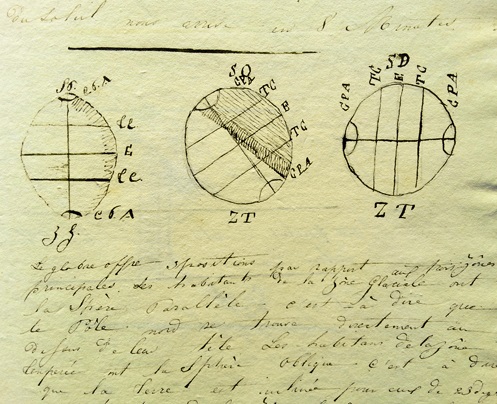 Du Soleil nous arrive en 8 Minutes
Sp. C6A
CC
E
CC
C6A
ZG
SO
CPA
TC
E
TC
CPA
ZT
SD
CPA
TC
E
TC
CPA
ZT
Le globe offre 3 positions par rapport aux trois zônes
principales. Les habitants de la Zône Glaciale ont
la Sphère Parallèle c'est à dire que
le Pôle nord se trouve directement au
Dessus de leur tête Les habitans de la Zône
tempérée ont la Sphère oblique c'est à dire
que la terre est inclinée pour eux de 23 deg